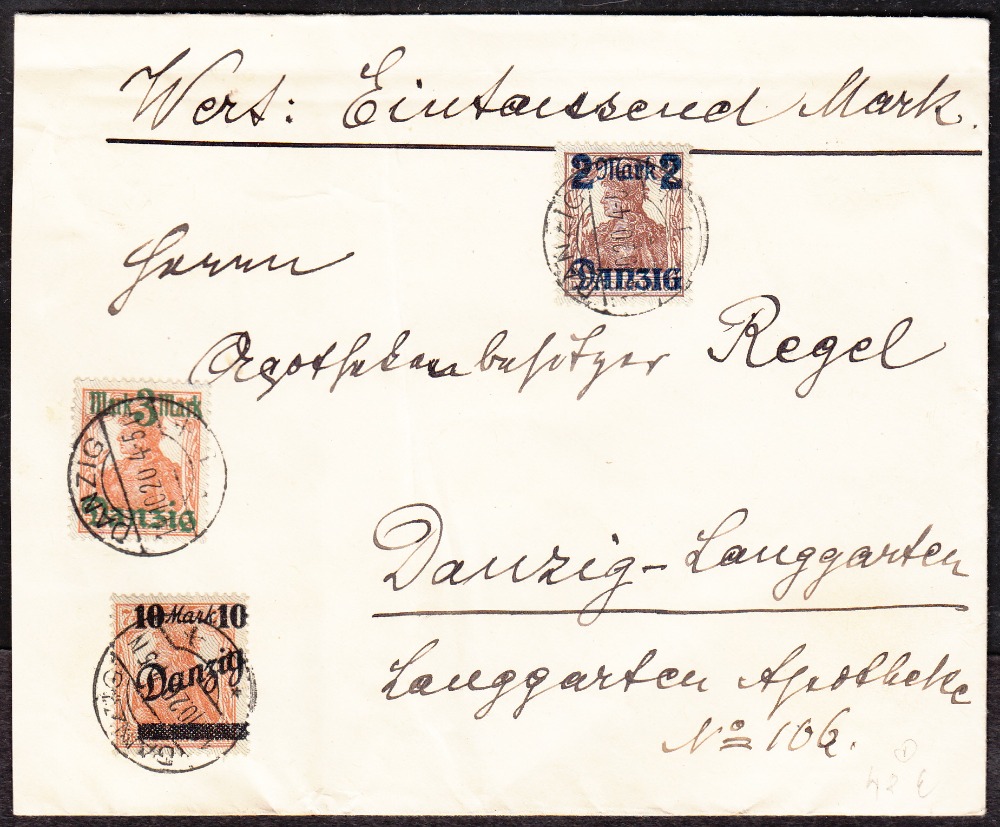 Wert: Eintausend Mark.
2 Mark 2
Danzig
DANZIG
Herrn
Apothekenbesitzer Regel
Mark 3 Mark
Danzig
DANZIG
10 20 4-5 N
Danzig-Langgarten
10 Mark 10
Danzig
DANZIG
Langgarten Apotheke
No 106.